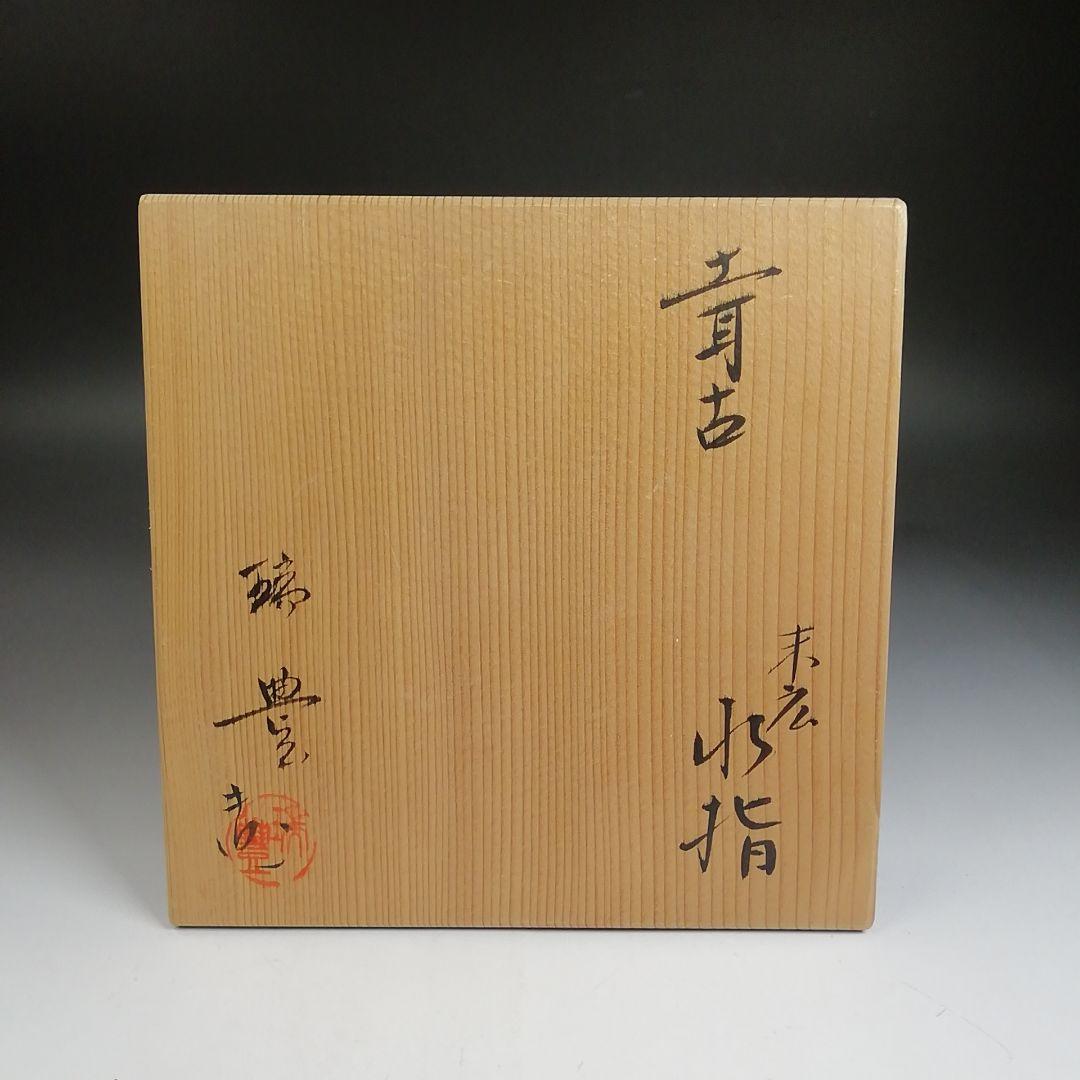 古
末広
水指
瑞豊造
瑞豊